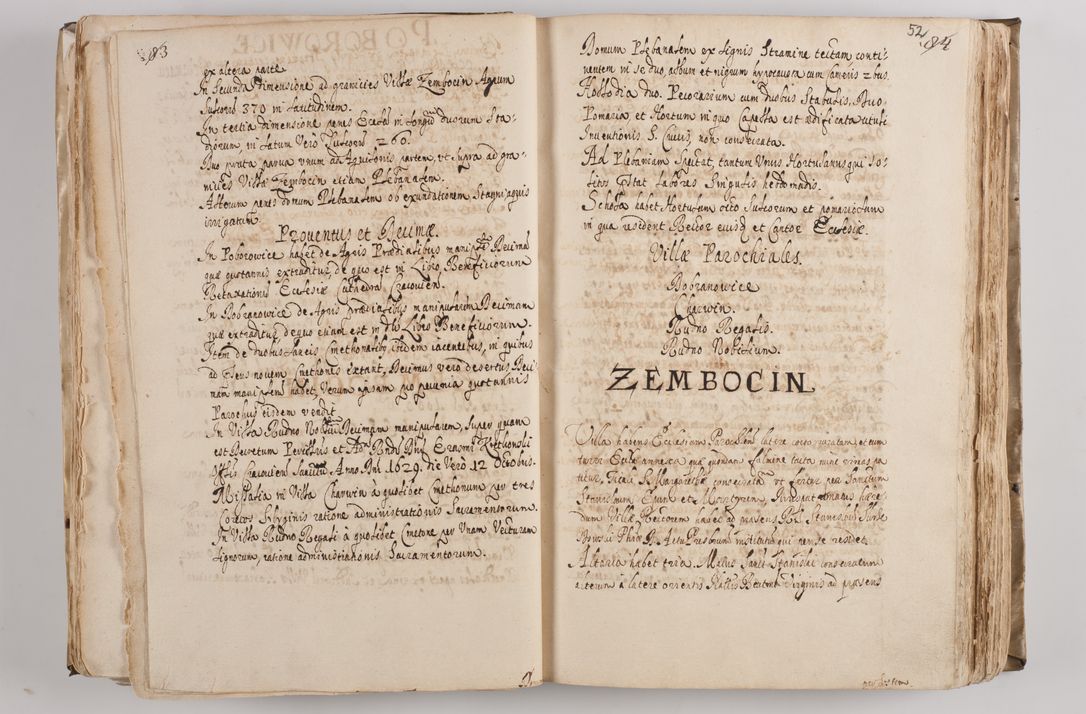 183
ex altera parte
In secunda dimensione ad granicies Villæ Zembocin Agrum
Sulcorū 370 in Latitudinem.
In tertia dimensione penes Ecclam in longū duorum Sta-
diorum, in latum Vero Sulcorū 260.
Duo prata parva vnum ad Aquilonis partem, vt supra ad gra-
nicies Villæ Zembocin etiam Plebanalem.
Alterum penes domum Plebanalem ob exundationem Stagni aquis
irrigatum.
Proventus et Decimæ.
In Poborowice habet de Agris Prædialibus manip. Decimā
quæ quotannis extraditur, de quo est in Libro Beneficiorum
Retaxationis Ecclesiæ Cathedra. Cracovien.
In Bobranowice de Agris prædialibus manipularem Decimam
quæ extraditur, de quo etiam est in Libro Beneficiorum.
Item de duobus Laneis Cmethonalib9 ibidem iacentibus, in quibus
ad Cmethones extant, Decimas vero desertas Deci
mam manipulem habet, Verum ipsam pro pecunia quotannis
Parochus eisdem vendit
In Villa Rudno Decimam manipularem, super quam
est Decretum Perillris et Adm Rndi Dni Erasmi Kretkowski
Offlis Cracovien Anno Dni 1629. die Vero 12 Octobris.
Missalia in Villa Charwin à quolibet Cmethonum per tres
Coretos Siliginis ratione administrationis Sacramentorum.
In Villa Rudno Regali à quolibet Cmetone per Vnam Vecturam
Lignorum, ratione administrationis Sacramentorum.
52
184
Domum Plebanalem ex lignis Stramine tectam conti-
nentem in se duo, album et nigrum hypocausta cum Cameris 2bus.
Allodia duo. Pecorarium cum duobus Stabulis. Duo
Pomaria, et Hortum in quo Capella est ædificata tituli
Inventionis S. Crucis, non consecrata.
Ad Plebaniam Spectat, tantum Vnus Hortulanus qui so-
litos pstat labores Singulis hebdomadis.
Schola habet Hortulum octo Sulcorum et pomariolum
in qua resident Rector eiusd et Cantor Ecclesiæ.
Villæ Parochiales.
Bobranowice
Charwin.
Rudno Regalis.
Rudno Nobilium.
ZEMBOCIN
Villa habens Ecclesiam Parochlem latere cocto muratam, et cum
turri Eccle annexa quæ quondam fulmine tacta nunc rimas pa
titur, Tituli S. Margarethæ consecrata vt fertur per Sanctum
Stanislaum Eppum et Martyrem, Iurispatronatus hære-
dum Villæ, Rectorem habet ad præsens Rd. Stanislaū
institutū qui per se residet.
Altaria habet tria. Maius Sancti Stanislai consecratum
alterum à latere orientis Natlis Beatmæ Virginis ad præsens